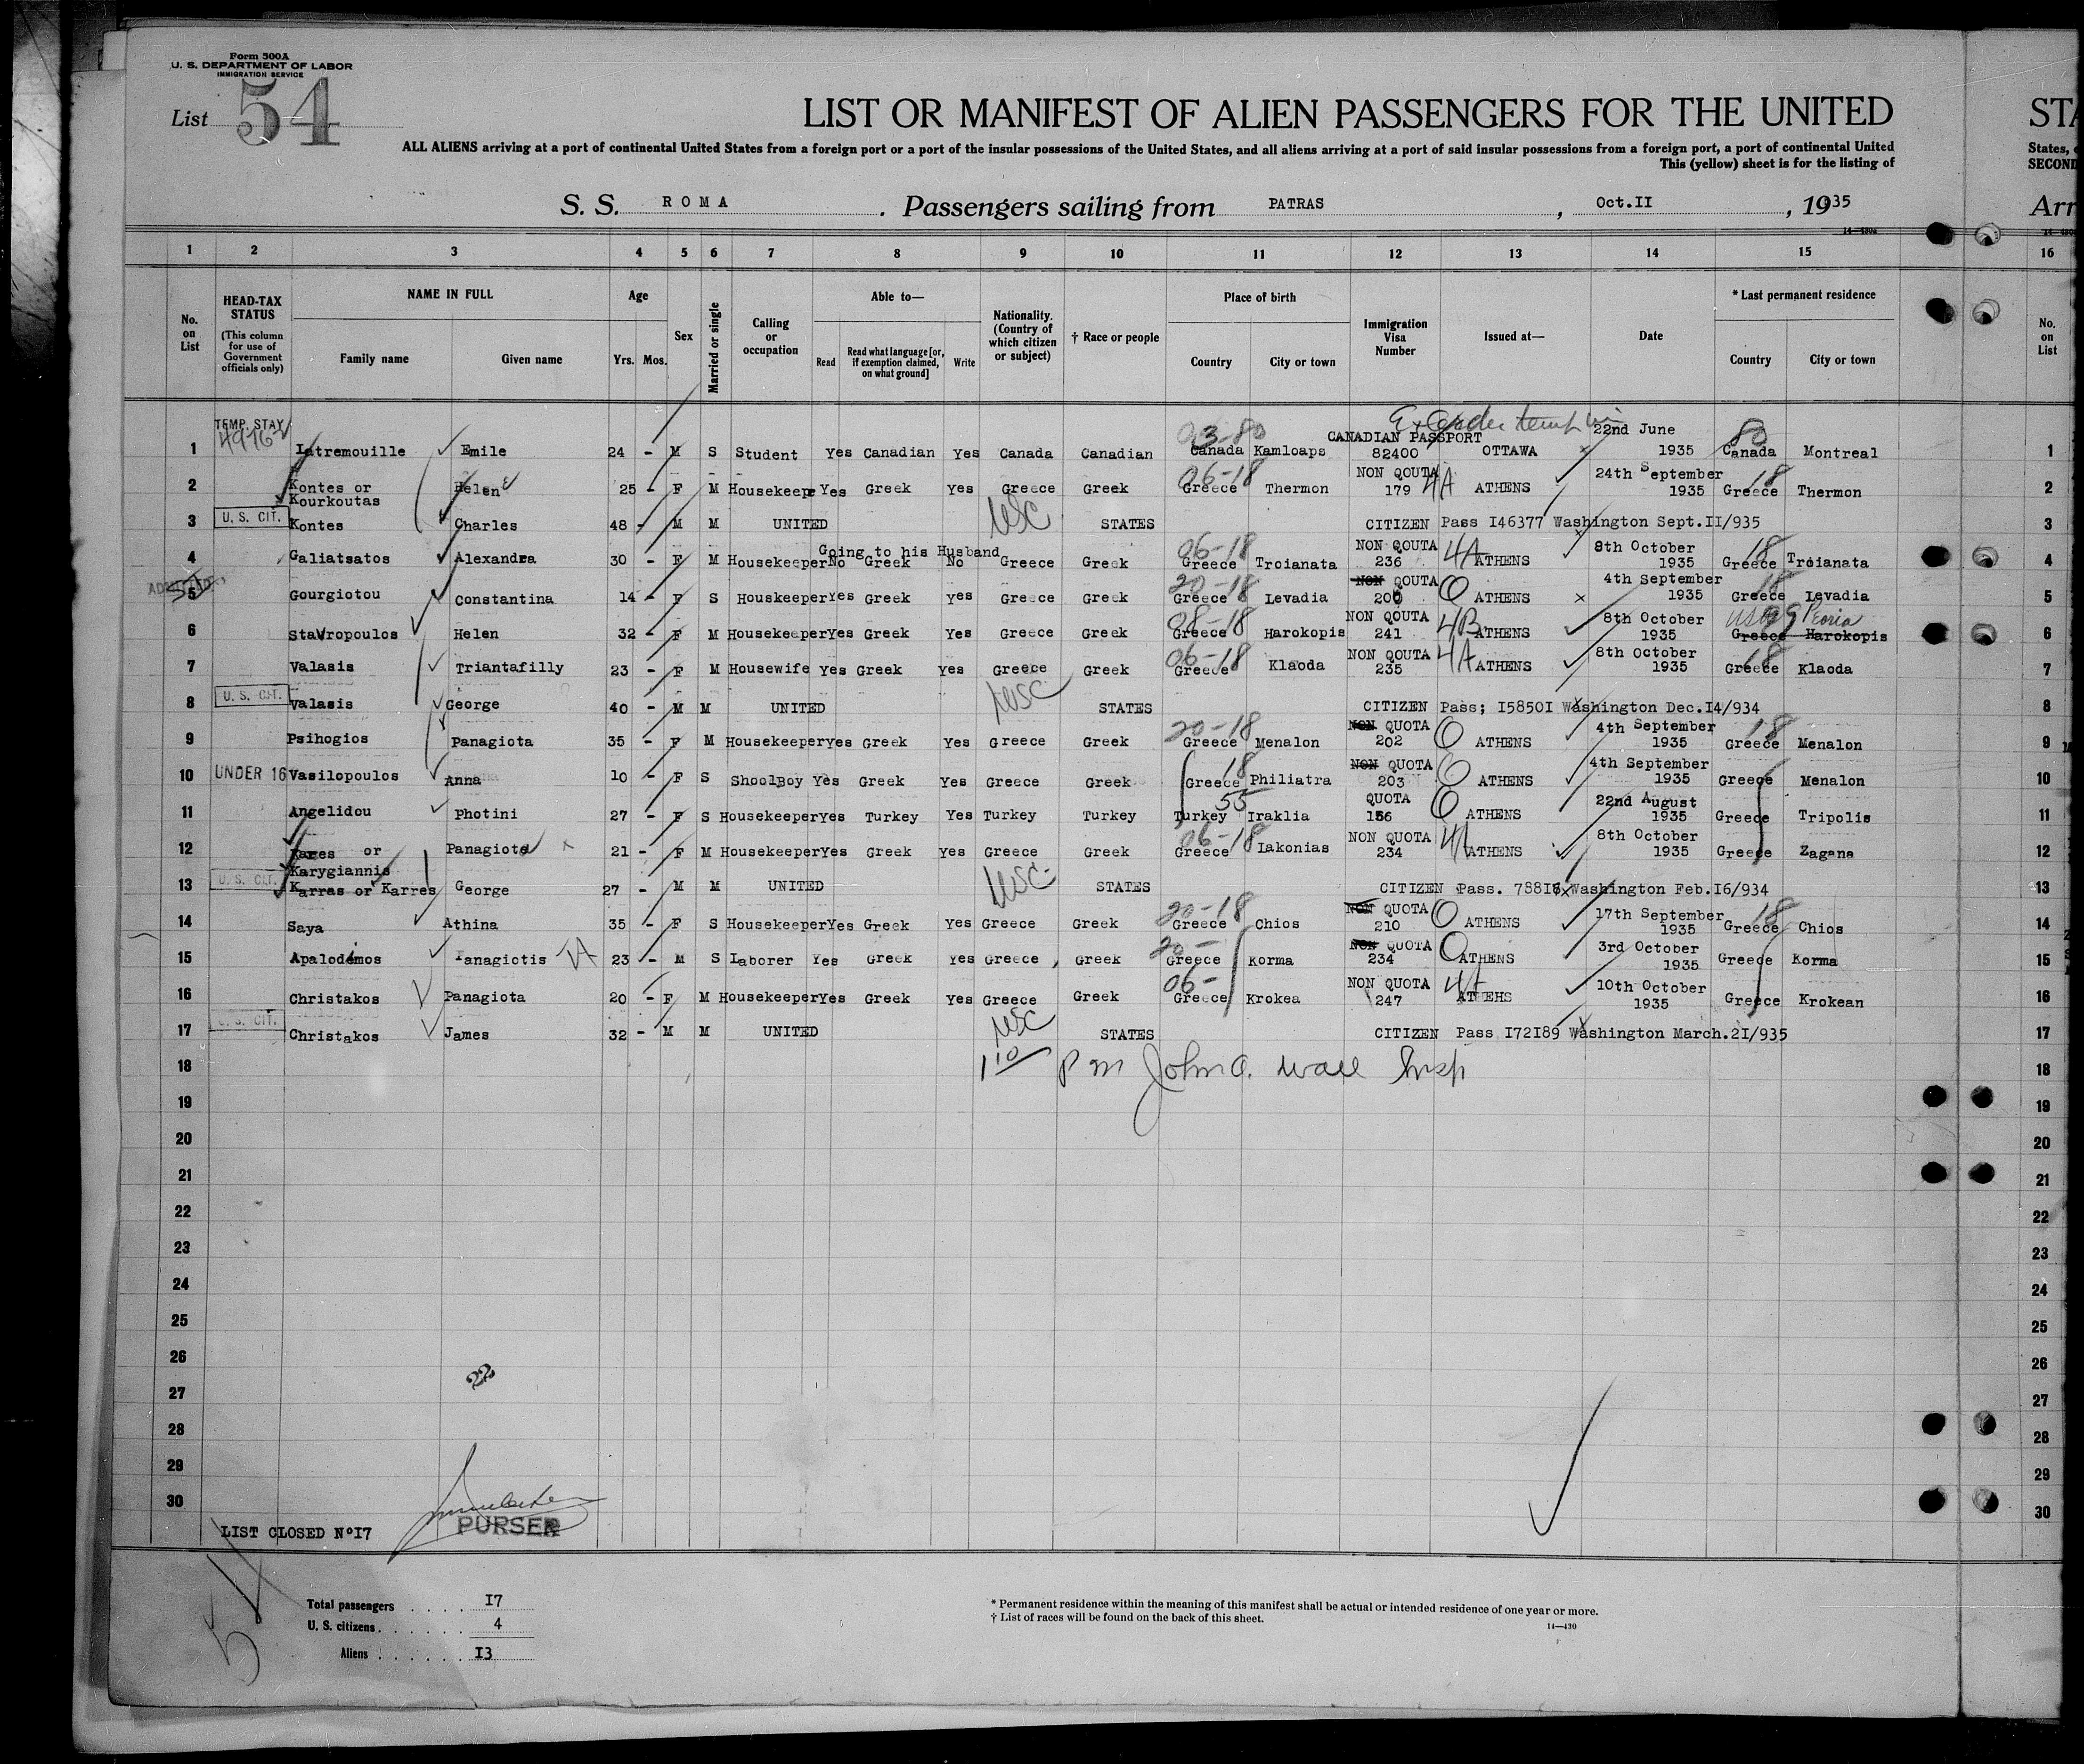 Form 500A
U. S. DEPARTMENT OF LABOR
IMMIGRATION SERVICE
List 54
LIST OR MANIFEST OF ALIEN PASSENGERS FOR THE UNITED
STA
ALL ALIENS arriving at a port of continental United States from a foreign port or a port of the insular possessions of the United States, and all aliens arriving at a port of said insular possessions from a foreign port, a port of continental United
States,
This (yellow) sheet is for the listing of
SECOND
S. S. ROMA . Passengers sailing from PATRAS , Oct.II , 1935
Arr
14—480a
1 2 3 4 5 6 7 8 9 10 11 12 13 14 15 16
No. on List
HEAD-TAX STATUS (This column for use of Government officials only)
NAME IN FULL Family name Given name
Age Yrs. Mos.
Sex
Married or single
Calling or occupation
Able to— Read Read what language [or, if exemption claimed, on what ground] Write
Nationality. (Country of which citizen or subject)
† Race or people
Place of birth Country City or town
Immigration Visa Number
Issued at—
Date
* Last permanent residence Country City or town
No. on List
TEMP. STAY 03-80 22nd June 80
1 Latremouille Emile 24 - M S Student Yes Canadian Yes Canada Canadian Canada Kamloaps CANADIAN PASSPORT 82400 OTTAWA 1935 Canada Montreal 1
2 Kontes or Kourkoutas Helen 25 - F M Housekeep Yes Greek Yes Greece Greek 06-18 Greece Thermon NON QOUTA 179 4A ATHENS 24th September 1935 18 Greece Thermon 2
3 U. S. CIT. Kontes Charles 48 - M M UNITED USC STATES CITIZEN Pass I46377 Washington Sept.II/935 3
Going to his Husband
4 Galiatsatos Alexandra 30 - F M Housekeeper No Greek No Greece Greek 06-18 Greece Troianata NON QOUTA 236 4A ATHENS 8th October 1935 18 Greece Troianata 4
5 Gourgiotou Constantina 14 - F S Houskeeper Yes Greek Yes Greece Greek 20-18 Greece Levadia NON QOUTA 200 Q ATHENS 4th September 1935 18 Greece Levadia 5
6 Stavropoulos Helen 32 - F M Housekeeper Yes Greek Yes Greece Greek 08-18 Greece Harokopis NON QOUTA 241 4B ATHENS 8th October 1935 Peoria Greece Harokopis 6
7 Valasis Triantafilly 23 - F M Housewife Yes Greek Yes Greece Greek 06-18 Greece Klaoda NON QOUTA 235 4A ATHENS 8th October 1935 18 Greece Klaoda 7
8 U. S. CIT. Valasis George 40 - M M UNITED USC STATES CITIZEN Pass; I5850I Washington Dec.I4/934 8
9 Psihogios Panagiota 35 - F M Housekeeper Yes Greek Yes Greece Greek 20-18 Greece Menalon NON QUOTA 202 Q ATHENS 4th September 1935 18 Greece Menalon 9
10 UNDER 16 Vasilopoulos Anna 10 - F S ShoolBoy Yes Greek Yes Greece Greek 18 Greece Philiatra NON QUOTA 203 Q ATHENS 4th September 1935 Greece Menalon 10
11 Angelidou Photini 27 - F S Housekeeper Yes Turkey Yes Turkey Turkey 55 Turkey Iraklia QUOTA 186 Q ATHENS 22nd August 1935 Greece Tripolis 11
12 Kares or Karygiannis Panagiota 21 - F M Housekeeper Yes Greek Yes Greece Greek 06-18 Greece Lakonias NON QUOTA 234 4A ATHENS 8th October 1935 Greece Zagana 12
13 U. S. CIT. Karras or Karres George 27 - M M UNITED USC STATES CITIZEN Pass. Washington Feb.I6/934 13
14 Saya Athina 35 - F S Housekeeper Yes Greek Yes Greece Greek 20-18 Greece Chios NON QUOTA 210 Q ATHENS 17th September 1935 18 Greece Chios 14
15 Apalodimos Panagiotis 23 - M S Laborer Yes Greek Yes Greece, Greek 20- Greece Korma NON QUOTA 234 Q ATHENS 3rd October 1935 Greece Korma 15
16 Christakos Panagiota 20 - F M Housekeeper Yes Greek Yes Greece Greek 06- Greece Krokea NON QUOTA 247 4A ATHEHS 10th October 1935 Greece Krokean 16
17 U. S. CIT. Christakos James 32 - M M UNITED USC STATES CITIZEN Pass I72I89 Washington March.2I/935 17
18 1 10 PM John A. Wall Insp 18
19 19
20 20
21 21
22 22
23 23
24 24
25 25
26 26
27 27
28 28
29 29
30 30
22
LIST CLOSED NºI7
PURSER
54
Total passengers . . . . I7
U. S. citizens . . . . . . 4
Aliens . . . . . . I3
* Permanent residence within the meaning of this manifest shall be actual or intended residence of one year or more.
† List of races will be found on the back of this sheet.
14—430